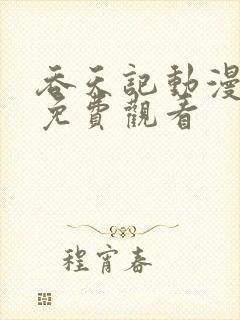 吞天記動漫
免費觀看
程宵春